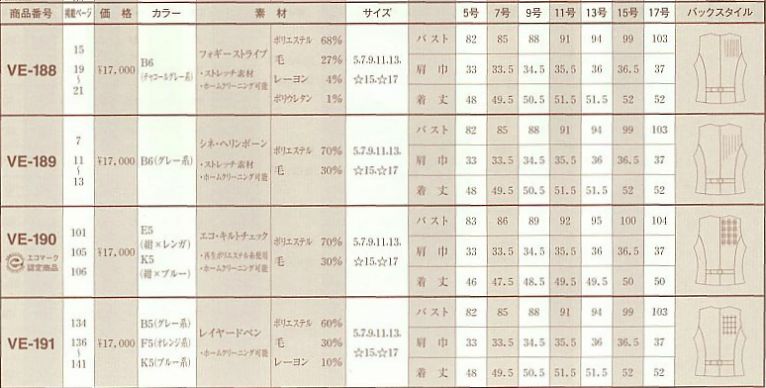 商品番号 掲載ページ 価格 カラー 素材 サイズ 5号 7号 9号 11号 13号 15号 17号 バックスタイル
VE-188
15
19
〜
21
¥17,000
B6
(チャコールグレー系)
フォギーストライプ
・ストレッチ素材
・ホームクリーニング可能
ポリエステル 68%
毛 27%
レーヨン 4%
ポリウレタン 1%
5.7.9.11.13.
☆15.☆17
バスト 82 85 88 91 94 99 103
肩巾 33 33.5 34.5 35.5 36 36.5 37
着丈 48 49.5 50.5 51.5 51.5 52 52
VE-189
7
11
〜
13
¥17,000
B6(グレー系)
シネ・ヘリンボーン
・ストレッチ素材
・ホームクリーニング可能
ポリエステル 70%
毛 30%
5.7.9.11.13.
☆15.☆17
バスト 82 85 88 91 94 99 103
肩巾 33 33.5 34.5 35.5 36 36.5 37
着丈 48 49.5 50.5 51.5 51.5 52 52
VE-190
エコマーク
認定商品
101
105
106
¥17,000
E5
(紺×レンガ)
K5
(紺×ブルー)
エコ・キルトチェック
・再生ポリエステル糸使用
・ホームクリーニング可能
ポリエステル 70%
毛 30%
5.7.9.11.13.
☆15.☆17
バスト 83 86 89 92 95 100 104
肩巾 33 33.5 34.5 35.5 36 36.5 37
着丈 46 47.5 48.5 49.5 49.5 50 50
VE-191
134
136
〜
141
¥17,000
B5(グレー系)
F5(オレンジ系)
K5(ブルー系)
レイヤードペン
・ホームクリーニング可能
ポリエステル 60%
毛 30%
レーヨン 10%
5.7.9.11.13.
☆15.☆17
バスト 82 85 88 91 94 99 103
肩巾 33 33.5 34.5 35.5 36 36.5 37
着丈 48 49.5 50.5 51.5 51.5 52 52